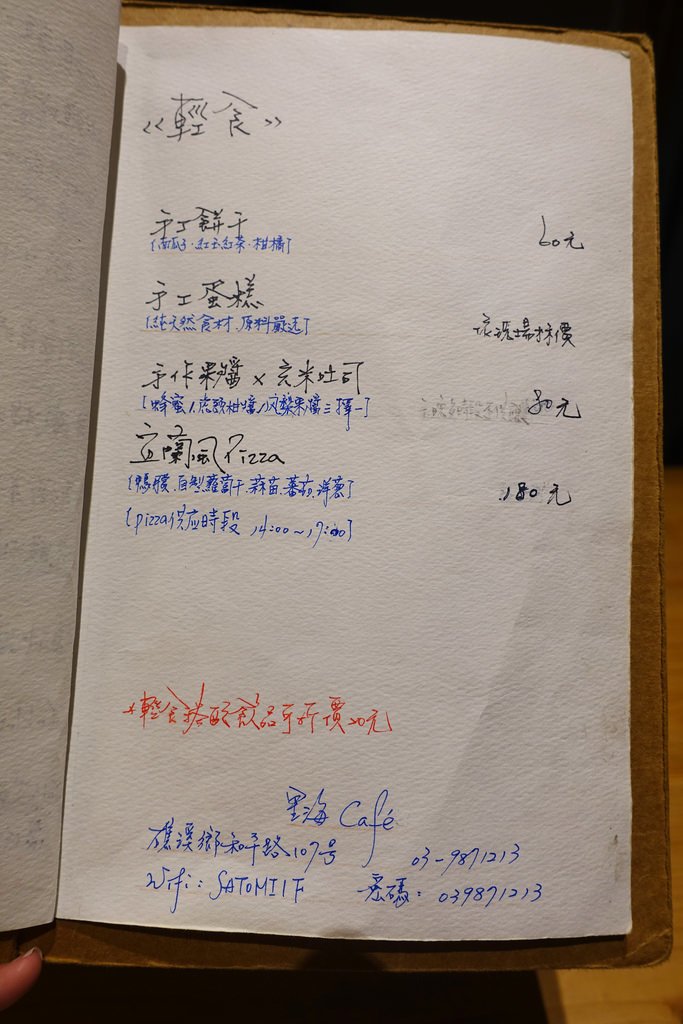 《輕食》
手工餅干 60元
[南瓜子.紅玉紅茶.柑橘]
手工蛋糕
[純天然食材.原料嚴选] 依現場標價
手作果醬 x 玄米吐司
[蜂蜜/虎頭柑醬/桑果醬三擇一] 80元
宜蘭風Pizza
[鴨賞.自制蘿蔔干.蒜苗.蕃茄.洋蔥] 180元
[pizza供应時段 14:00~17:00]
*輕食搭配飲品可折價20元
里海 Café
礁溪鄉和平路107号 03-9871213
Wifi: SATOMI1F 密碼: 039871213